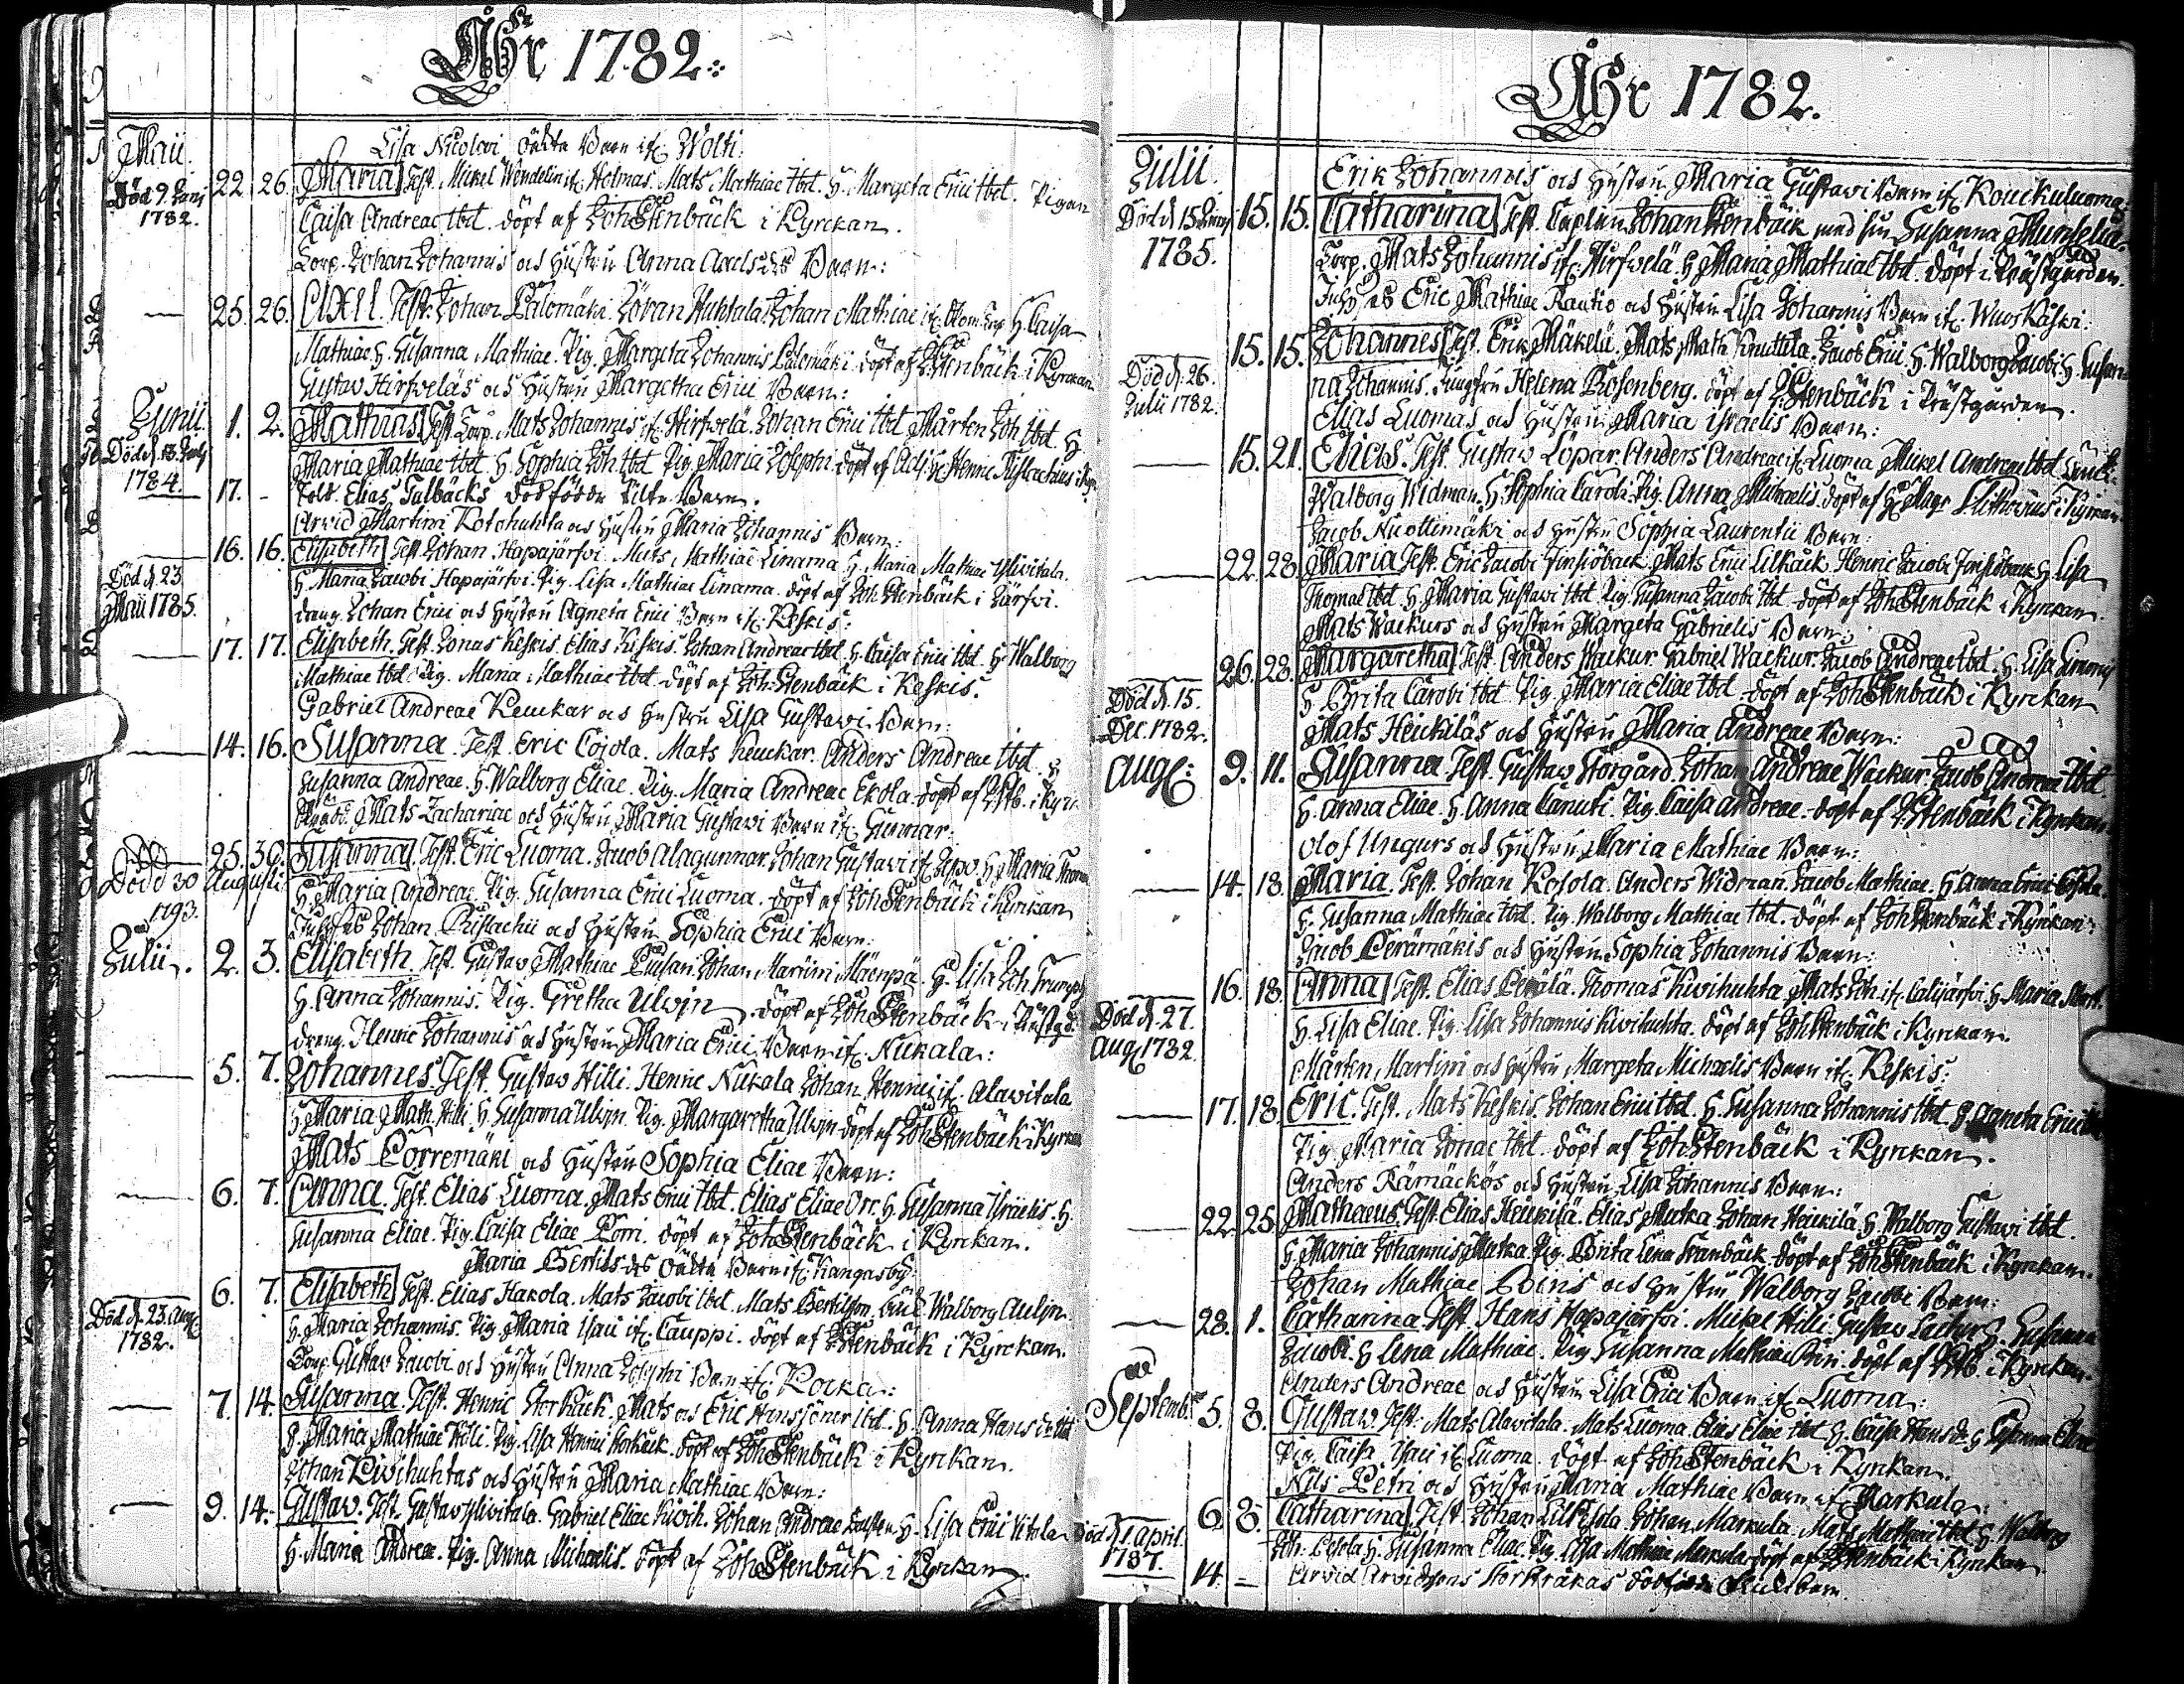 Åhr 1782.
Maii.
Lisa Nicolai oäkta Barn if. Wolti.
Död 9. Junii 1782.
22 26. Maria Test. Mickel Wendelin if. Helmas. Mats Mathiae Ibd. H. Margeta Erici Ibd. Pigan
Caisa Andreae Ibd. döpt af Joh Stenbäck i Kyrckan.
Corp. Johan Johannis och Hustru Anna Axelsdr Barn:
— 25. 26. Axel. Test. Johan Palomäki. Johan Huhtala. Johan Mathiae H. Caisa
Mathiae. H. Susanna Mathiae. Pig. Margeta Johannis Palomäki. döpt af J. Stenbäck i Kyrckan
Gustaw Hirfweläs och Hustru Margetha Erici Barn:
Junii 1. 2. Mathias Test. Corp. Mats Johannis if. Hirfwelä. Johan Erici Ibd Mårten Joh Ibd. H
Död d. 13. July 1784.
Maria Mathiae Ibd. H. Sophia Joh Ibd Pig. Maria Josephi. döpt af Adj. H. Henric
17. - Sold. Elias Sulbäcks dödfödde Barn.
Arvid Martini Kotohuhta och Hustru Maria Johannis Barn:
— 16. 16. Elisabeth Test. Johan Hapajärfvi. Mats Mathiae Linama H. Maria Mathiae Ylivitala.
Död d. 23 Maii 1785.
H. Maria Jacobi Hapajärfvi. Pig. Lisa Mathiae Linama. döpt af Joh Stenbäck i Järfvi.
Dräng. Johan Erici och Hustru Agneta Erici Barn if. Keskis:
— 17. 17. Elisabeth. Test. Jonas Keskis. Elias Keskis. Johan Andreae Ibd. H. Caisa Erici Ibd. H. Walborg
Mathiae Ibd. Pig. Maria Mathiae Ibd. döpt af Joh. Stenbäck i Keskis.
Gabriel Andreae Keuckar och Hustru Lisa Gustawi Barn:
— 14. 16. Susanna. Test. Eric Cojola. Mats Keuckar. Anders Andreae Ibd. H
Susanna Andreae. H. Walborg Eliae. Pig. Maria Andreae Ekola. döpt af J. Stb. i Kyrc
Mats Zachariae och Hustru Maria Gustawi Barn if. Gunnar:
— 25. 30. Susanna. Test. Eric Luoma. Jacob Alagunnar. Johan Gustawi if. H. Maria
Död d 30 Augusti 1793.
H. Maria Andreae. Pig. Susanna Erici Luoma. döpt af Joh Stenbäck i Kyrkan
Johan Eustachii och Hustru Sophia Erici Barn:
Julii. 2. 3. Elisabeth Test. Gustaw Mathiae Johan Martini Mäenpä. H. Lisa Joh
H. Anna Johannis. Pig. Gretha Ulvijn. döpt af Joh Stenbäck i Prästgd.
Dreng. Henric Johannis och Hustru Maria Erici Barn if. Nikala:
— 5. 7. Johannes Test. Gustaw Hilli. Henric Nikala Johan Henrici if. Alavitala
H. Maria Math. Hilli. H. Susanna Ulvijn. Pig. Margaretha Ulvijn döpt af Joh Stenbäck i Kyrckan
Mats Porremäki och Hustru Sophia Eliae Barn:
— 6. 7. Anna. Test. Elias Luoma. Mats Erici Ibd. Elias Eliae Orr. H. Susanna Israelis. H.
Susanna Eliae. Pig. Caisa Eliae Porri. döpt af Joh Stenbäck i Kyrckan.
Maria Bertils dr oäkta Barn if. Kangasby:
6. 7. Elisabeth Test. Elias Hakola. Mats Jacobi Ibd. Mats Bertilsson. Walborg Aulijn.
Död d. 23. Aug. 1782.
H. Maria Johannis. Pig. Maria Isaci if. Cauppi. döpt af J. Stenbäck i Kyrckan.
Corp. Gustaw Jacobi och Hustru Anna Josephi Barn if. Kocka:
— 7. 14. Susanna. Test. Henric Storkåck. Mats och Eric Hanssöner Ibd. H. Anna Hansdr Ibd
H. Maria Mathiae Hilli. Pig. Lisa Henrici Storkåck. döpt af Joh Stenbäck i Kyrckan.
Johan Kivihuhtas och Hustru Maria Mathiae Barn:
— 9. 14. Gustaw. Test. Gustaw Ylivitala. Gabriel Eliae Kivih. Johan Andreae H. Lisa Erici Vitala
H. Maria Andreae. Pig. Anna Michaelis. döpt af Joh Stenbäck i Kyrckan
Åhr 1782.
Julii.
Erik Johannis och Hustru Maria Gustavi Barn if. Kouckuluoma:
15. 15. Catharina Test. Caplan Johan Stenbäck med fru Susanna
Död d. 15 1785.
Corp. Mats Johannis if. Hirfwelä. H Maria Mathiae Ibd. döpt i Prästgården.
Eric Mathiae Rautio och Hustru Lisa Johannis Barn if. Wuoskåski:
15. 15. Johannes Test. Erik Mäkelä. Mats Math Jacob Erici H. Walborg Jacobi H Susan-
Död d. 26. Julii 1782.
na Johannis. Jungfru Helena Rosenberg. döpt af J. Stenbäck i Prästgården.
Elias Luomas och Hustru Maria Israelis Barn:
— 15. 21. Elias. Test. Gustaw Löpar. Anders Andreae if. Luoma Mickel Andreae Ibd
Walborg Widman. H. Sophia Caroli. Pig. Anna Michaelis. döpt af H. i Kyrckan
Jacob Nuottimäki och Hustru Sophia Laurentii Barn:
— 22. 28. Maria Test. Eric Jacobi Finsjöback Mats Erici Lilkåck. Henric Jacobi Finsjöback H. Lisa
Thomae Ibd. H. Maria Gustawi Ibd Pig. Susanna Jacobi Ibd. döpt af Joh Stenbäck i Kyrckan.
Mats Wackurs och Hustru Margeta Gabrielis Barn:
26. 28. Margaretha Test. Anders Wackur. Gabriel Wackur. Jacob Andreae Ibd. H. Lisa
Död d. 15. Dec. 1782.
H Brita Jacobi Ibd. Pig. Maria Eliae Ibd. döpt af Joh Stenbäck i Kyrckan
Mats Heickiläs och Hustru Maria Andreae Barn:
Aug: 9. 11. Susanna Test. Gustaw Storgård. Johan Andreae Wackur. Jacob Andreae Ibd.
H. Anna Eliae. H. Anna Canuti. Pig. Caisa Andreae. döpt af J. Stenbäck i Kyrckan.
Olof Ungurs och Hustru Maria Mathiae Barn:
— 14. 18. Maria. Test. Johan Kosola. Anders Widman. Jacob Mathiae. H. Anna Erici
H. Susanna Mathiae Ibd. Pig. Walborg Mathiae Ibd. döpt af Joh Stenbäck i Kyrckan.
Jacob Perämäkis och Hustru Sophia Johannis Barn:
16. 18. Anna Test. Elias Perälä. Thomas Kivihuhta Mats Joh. if. Calijärfvi. H Maria
Död d. 27. Aug. 1782.
H. Lisa Eliae. Pig. Lisa Johannis Kivihuhta. döpt af Joh Stenbäck i Kyrckan.
Mårten Martini och Hustru Margeta Michaelis Barn if. Keskis:
— 17. 18. Eric. Test. Mats Keskis. Johan Erici Ibd. H. Susanna Johannis Ibd. H. Agneta Erici
Pig. Maria Jonae Ibd. döpt af Joh Stenbäck i Kyrckan.
Anders Rämäckös och Hustru Lisa Johannis Barn:
— 22. 25. Mathaeus. Test. Elias Heickilä. Elias Matka Johan Heickilä. H Walborg Gustawi Ibd.
H. Maria Johannis Matka. Pig. Brita Lena döpt af Joh Stenbäck i Kyrckan.
Johan Mathiae och Hustru Walborg Jacobi Barn:
— 28. 1. Catharina Test. Hans Hapajärfvi. Mickel Hilli. Gustaw H. Susanna
Jacobi. H Lena Mathiae. Pig Susanna Mathiae Porri. döpt af J. Stb. i Kyrckan.
Anders Andreae och Hustru Lisa Erici Barn if. Luoma:
Septemb. 5. 8. Gustaw. Test. Mats Alavitala. Mats Luoma. Elias Eliae Ibd H. Caisa Hansdr. H Susanna Eliae
Pig. Caisa Isaci if. Luoma. döpt af Joh Stenbäck i Kyrckan.
Nils Petri och Hustru Maria Mathiae Barn if. Markula:
6. 8. Catharina Test. Johan Johan Markula. Mats Mathiae Ibd. H. Walborg
Död d. 1 April. 1787.
H. Susanna Eliae. Pig. Lisa Mathiae Markula. döpt af J. Stenbäck i Kyrckan
14. - Arvid Arvidssons Storkråkas dödfödde